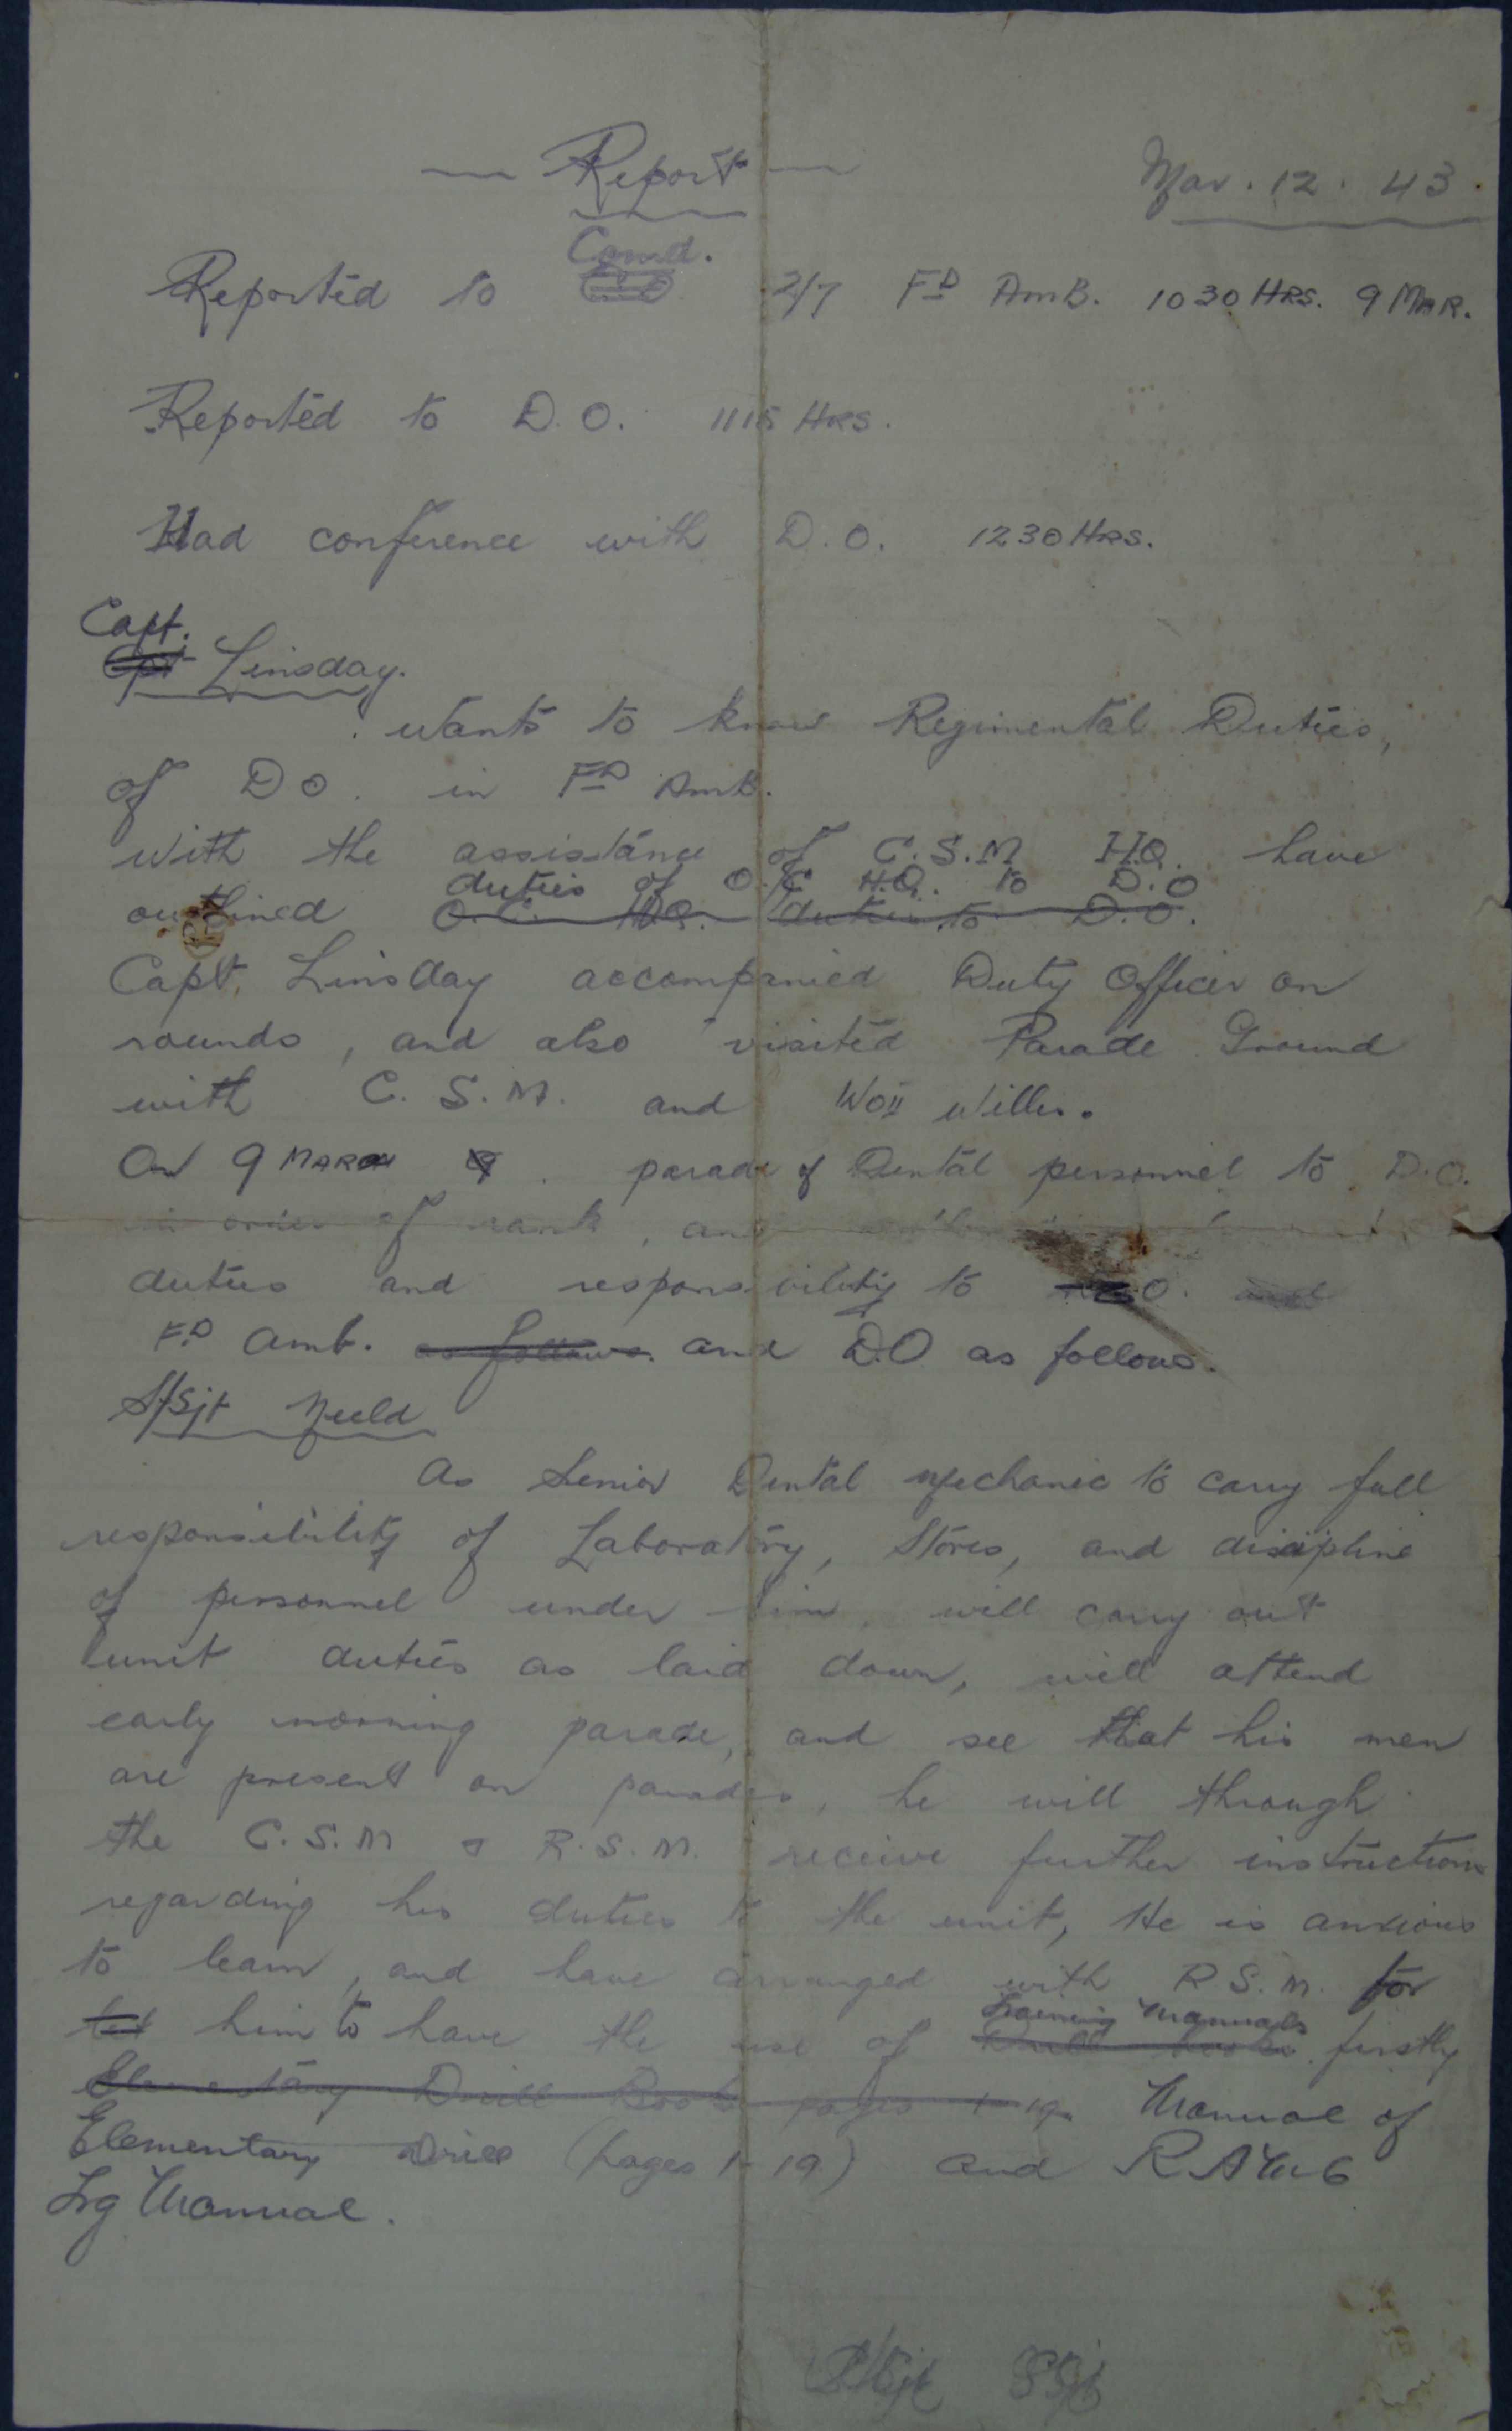 Report
Mar. 12. 43.
Comd.
Reported to CO 2/7 FD AmB. 1030 HRS. 9 MAR.
Reported to D.O. 1115 HRS.
Had conference with D.O. 1230 HRS.
Capt.
Cpt Linsday.
Wants to know Regimental Duties,
of DO. in FD AmB.
With the assistance of C.S.M H.Q. have
duties of O.C H.Q. to D.O
outlined O.C. HDQ. duties to D.O.
Capt. Linsday accompanied Duty Officer on
rounds, and also visited Parade Ground
with C.S.M. and WOII Willis.
On 9 MARCH 9. parade of Dental personnel to D.O.
in order of rank, and
duties and responsibility to O. and
FD Amb. as follows. and D.O as follows.
S/Sjt Neeld
As Senior Dental Mechanic to carry full
responsibility of Laboratory, Stores, and discipline
of personnel under him, will carry out
unit duties as laid down, will attend
early morning parade, and see that his men
are present on parades, he will through
the C.S.M & R.S.M. receive further instructions
regarding his duties to the unit, He is anxious
to learn, and have arranged with R.S.M. for
Training Manuals
let him to have the use of Drill books. firstly
Elementary Drill Book pages 1-19. Manual of
Elementary Drill (pages 1-19) and RAMC
Trg Manual.